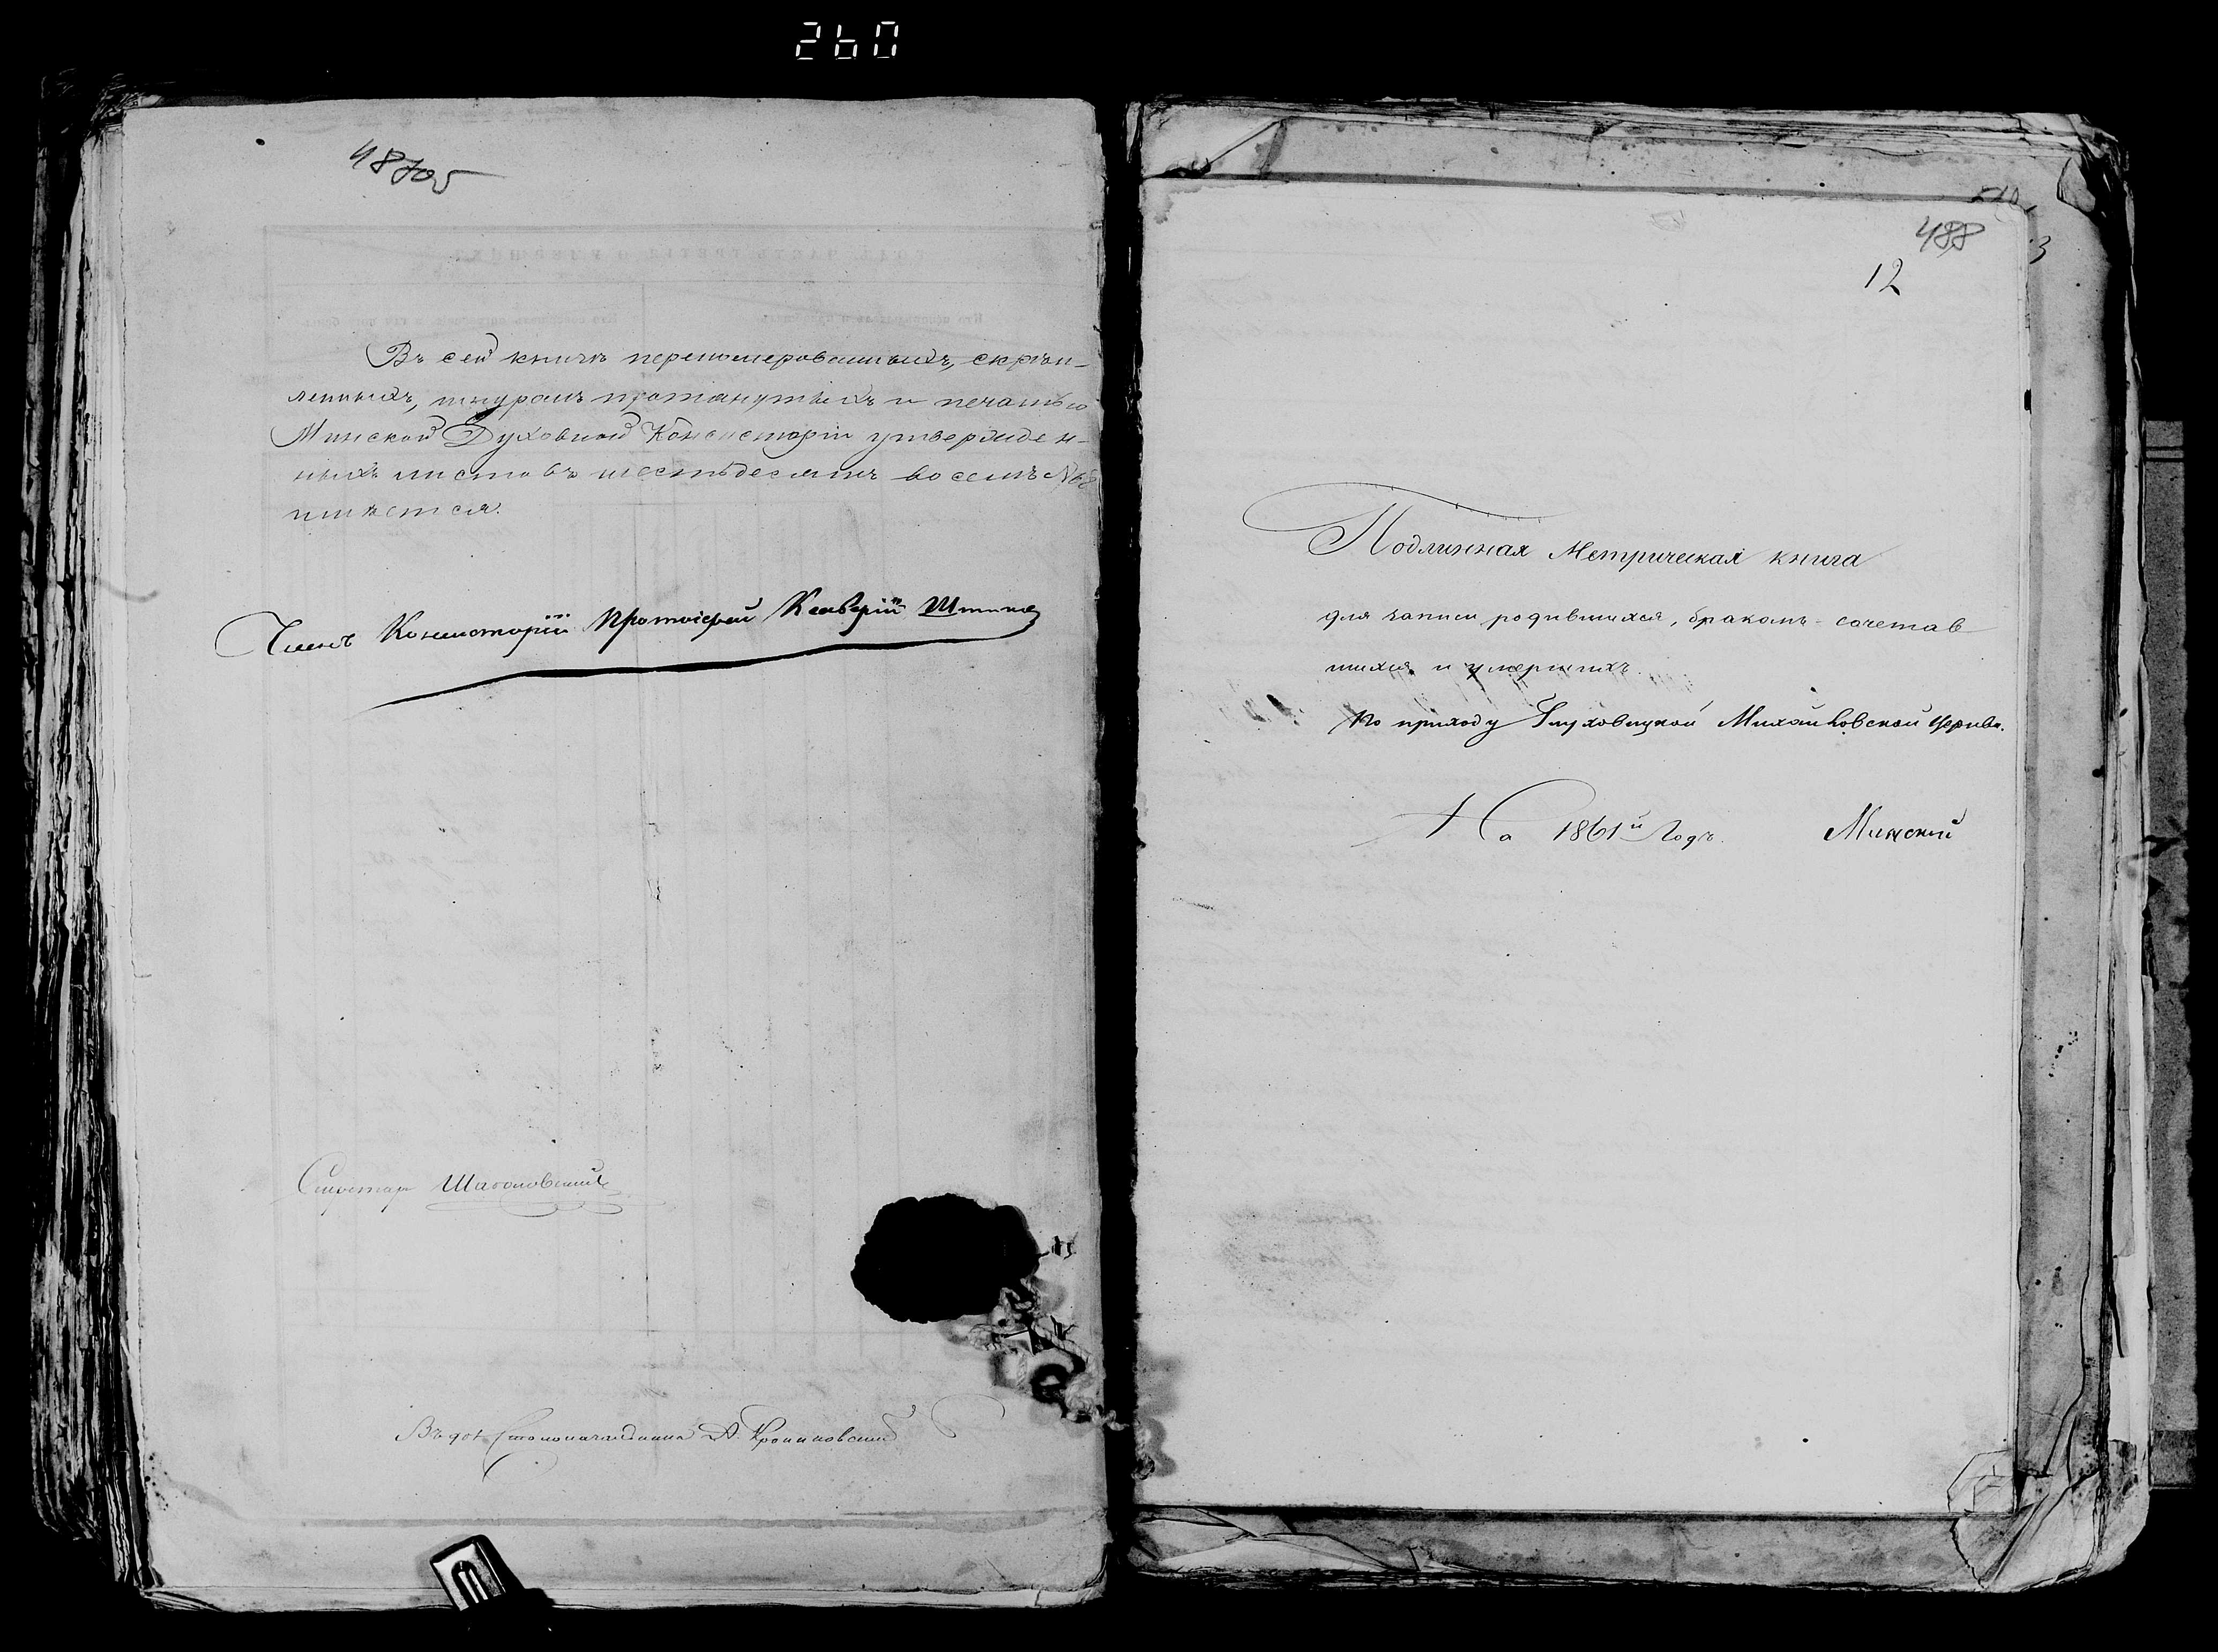 260
48705
Въ сей книгѣ перенумерованныхъ, скрѣп-
ленныхъ, шнуромъ протянутыхъ и печатью
Минской Духовной Консисторіи утвержден-
ныхъ листовъ шестьдесятъ восемь №68
имѣется.
Членъ Консисторіи Протоіерей
Секретарь
Столоначальника А.
488
12
Подлинная Метрическая книга
для записи родившихся, бракомъ-сочетав
шихся и умершихъ.
По приходу Глуховицкой Михайловской церкви.
На 1861й Годъ. Минский